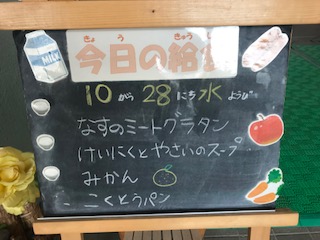 MILK
きょう きゅう
今日の給食
10 がつ 28 にち 水 ようび
なすのミートグラタン
けいにくとやさいのスープ
みかん
こくとうパン